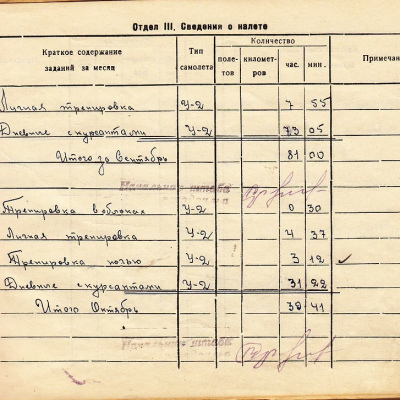 Отдел III. Сведения о налете
Краткое содержание заданий за месяц Тип самолета Количество Примечан
поле-тов километ-ров час. мин.
Личная тренировка У-2 7 55
Дневные с курсантами У-2 73 05
Итого за Сентябрь 81 00
Начальник штаба
Тренировка в облаках У-2 0 30
Личная тренировка У-2 4 37
Тренировка ночью У-2 3 12
Дневные с курсантами У-2 31 22
Итого Октябрь 39 41
Начальник штаба